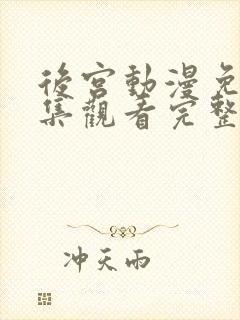 後宮動漫免
集觀看完整
冲天雨